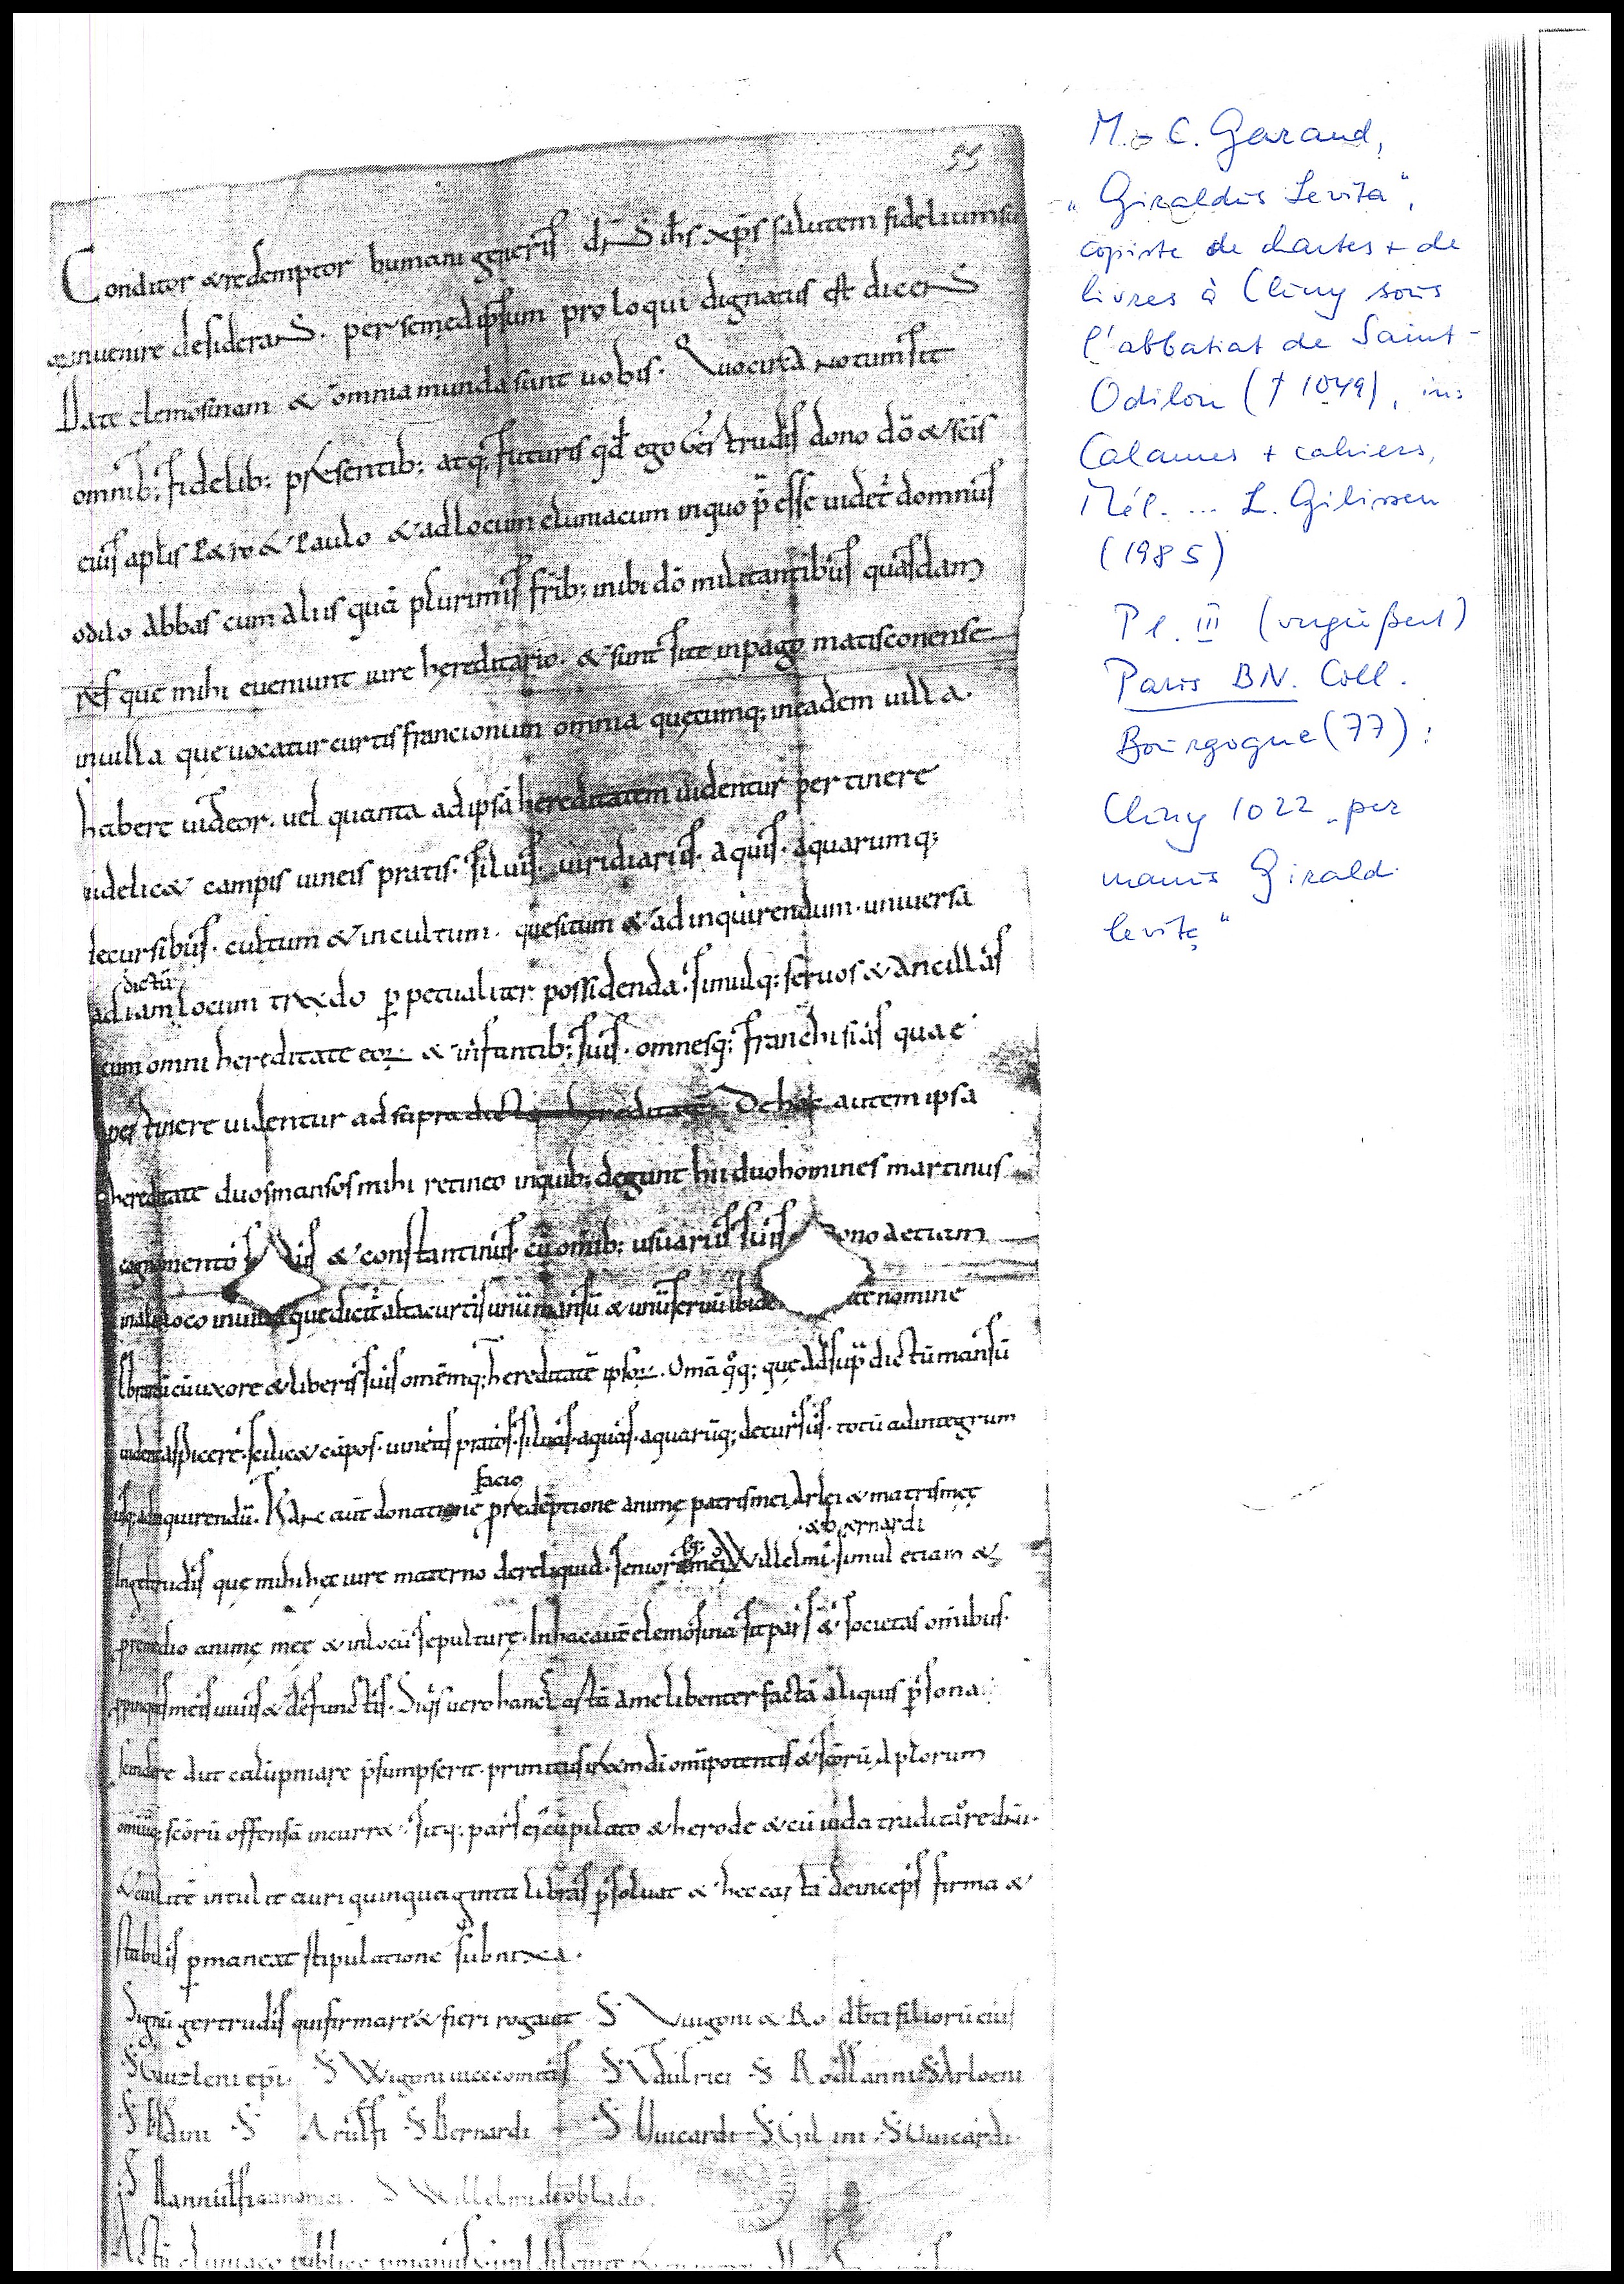 55
Conditor & redemptor humani generis ds ihs xps salutem fidelium su
inuenire desiderans. per semedipsum proloqui dignatus est dicens
Date elemosinam & omnia munda sunt uobis. Quocirca notum sit
omnib; fidelib; presentib; atq; futuris qd ego Gertrudis dono dō & scis
eius aplis P&ro & Paulo & ad locum cluniacum in quo p̄ esse uidet domnus
odilo abbas cum aliis quā plurimis frib; inibi dō militantibus quasdam
res que mihi eueniunt iure hereditario. & sunt site in pago matisconense
in uilla que uocatur curtis francionum omnia quecumq; in eadem uilla.
habere uideor. uel quanta ad ipsā hereditatem uidentur pertinere
uidelic& campis uineis pratis. siluis. uiridiariis. aquis. aquarumq;
decursibus. cultum & incultum. quesitum & adinquirendum. uniuersa
dictū
ad iam locum trado p petualiter possidenda. simulq; seruos & ancillas
cum omni hereditate eoꝝ & infantib; suis. omnesq; franchisias quae
pertinere uidentur ad supradictam hereditatē. De hac autem ipsa
hereditate duos mansos mihi retineo in quib; degunt hii duo homines martinus
cognomento & constantinus. cū omib; usuariis suis ono & etiam
in alio loco in uilla que dicit altacurtis unū mansū & unū seruū ibidē nomine
cū uxore & liberis suis omēmq; hereditatē ipsoꝝ. Omā qq; que ad sup dictū mansū
aspicere. scilic& cāpos. uineas pratos. siluas. aquas. aquarūq; decursus. totū ad integrum
facio
adinquirendū. Hanc aut donatione p redēptione anime patris mei Arlei & matris mee
& bernardi
Ingeltrudis que mihi hec iure materno dereliquid. senioris mei Willelmi. simul etiam &
p remedio anime mee & in locū sepulture. In hac aut elemosina sit pars & societas omibus
ppinquis meis uiuis & defunctis. Siqs uero hanc cartā a me libenter factā aliquis psona
scindere aut calūpniare psumpserit. primitus irā dī omipotentis & scōrū aplorum
omiūq; scōrū offensā incurr&. sitq; pars ei cū pilato & herode & cū iuda traditore dīi.
& cui litē intulit auri quinquaginta libras psoluat & hec carta deinceps firma &
stabilis pmaneat stipulatione subnixa.
Signū gertrudis qui firmare & fieri rogauit S Vuigoni & Ro dbti filiorū eius
S Gauzleni epi. S Wigoni uicecomitis S Vdulrici S Rodlanni S Arloeni
S S Arulfi S Bernardi S Vuicardi S Gil ini S Vuicardi
S Rannulfi canonici. S Willelmi de oblado.
Actū cluniaco publice
M.-C. Garand,
„Giraldus Levita“,
copiste de chartes + de
livres à Cluny sous
l'abbatiat de Saint-
Odilon († 1049), in:
Calames + cahiers,
Mél. ... L. Gilissen
(1985)
Pl. III (vergrößert)
Paris BN. Coll.
Bourgogne (77):
Cluny 1022 „per
manus Girald.
levitę“